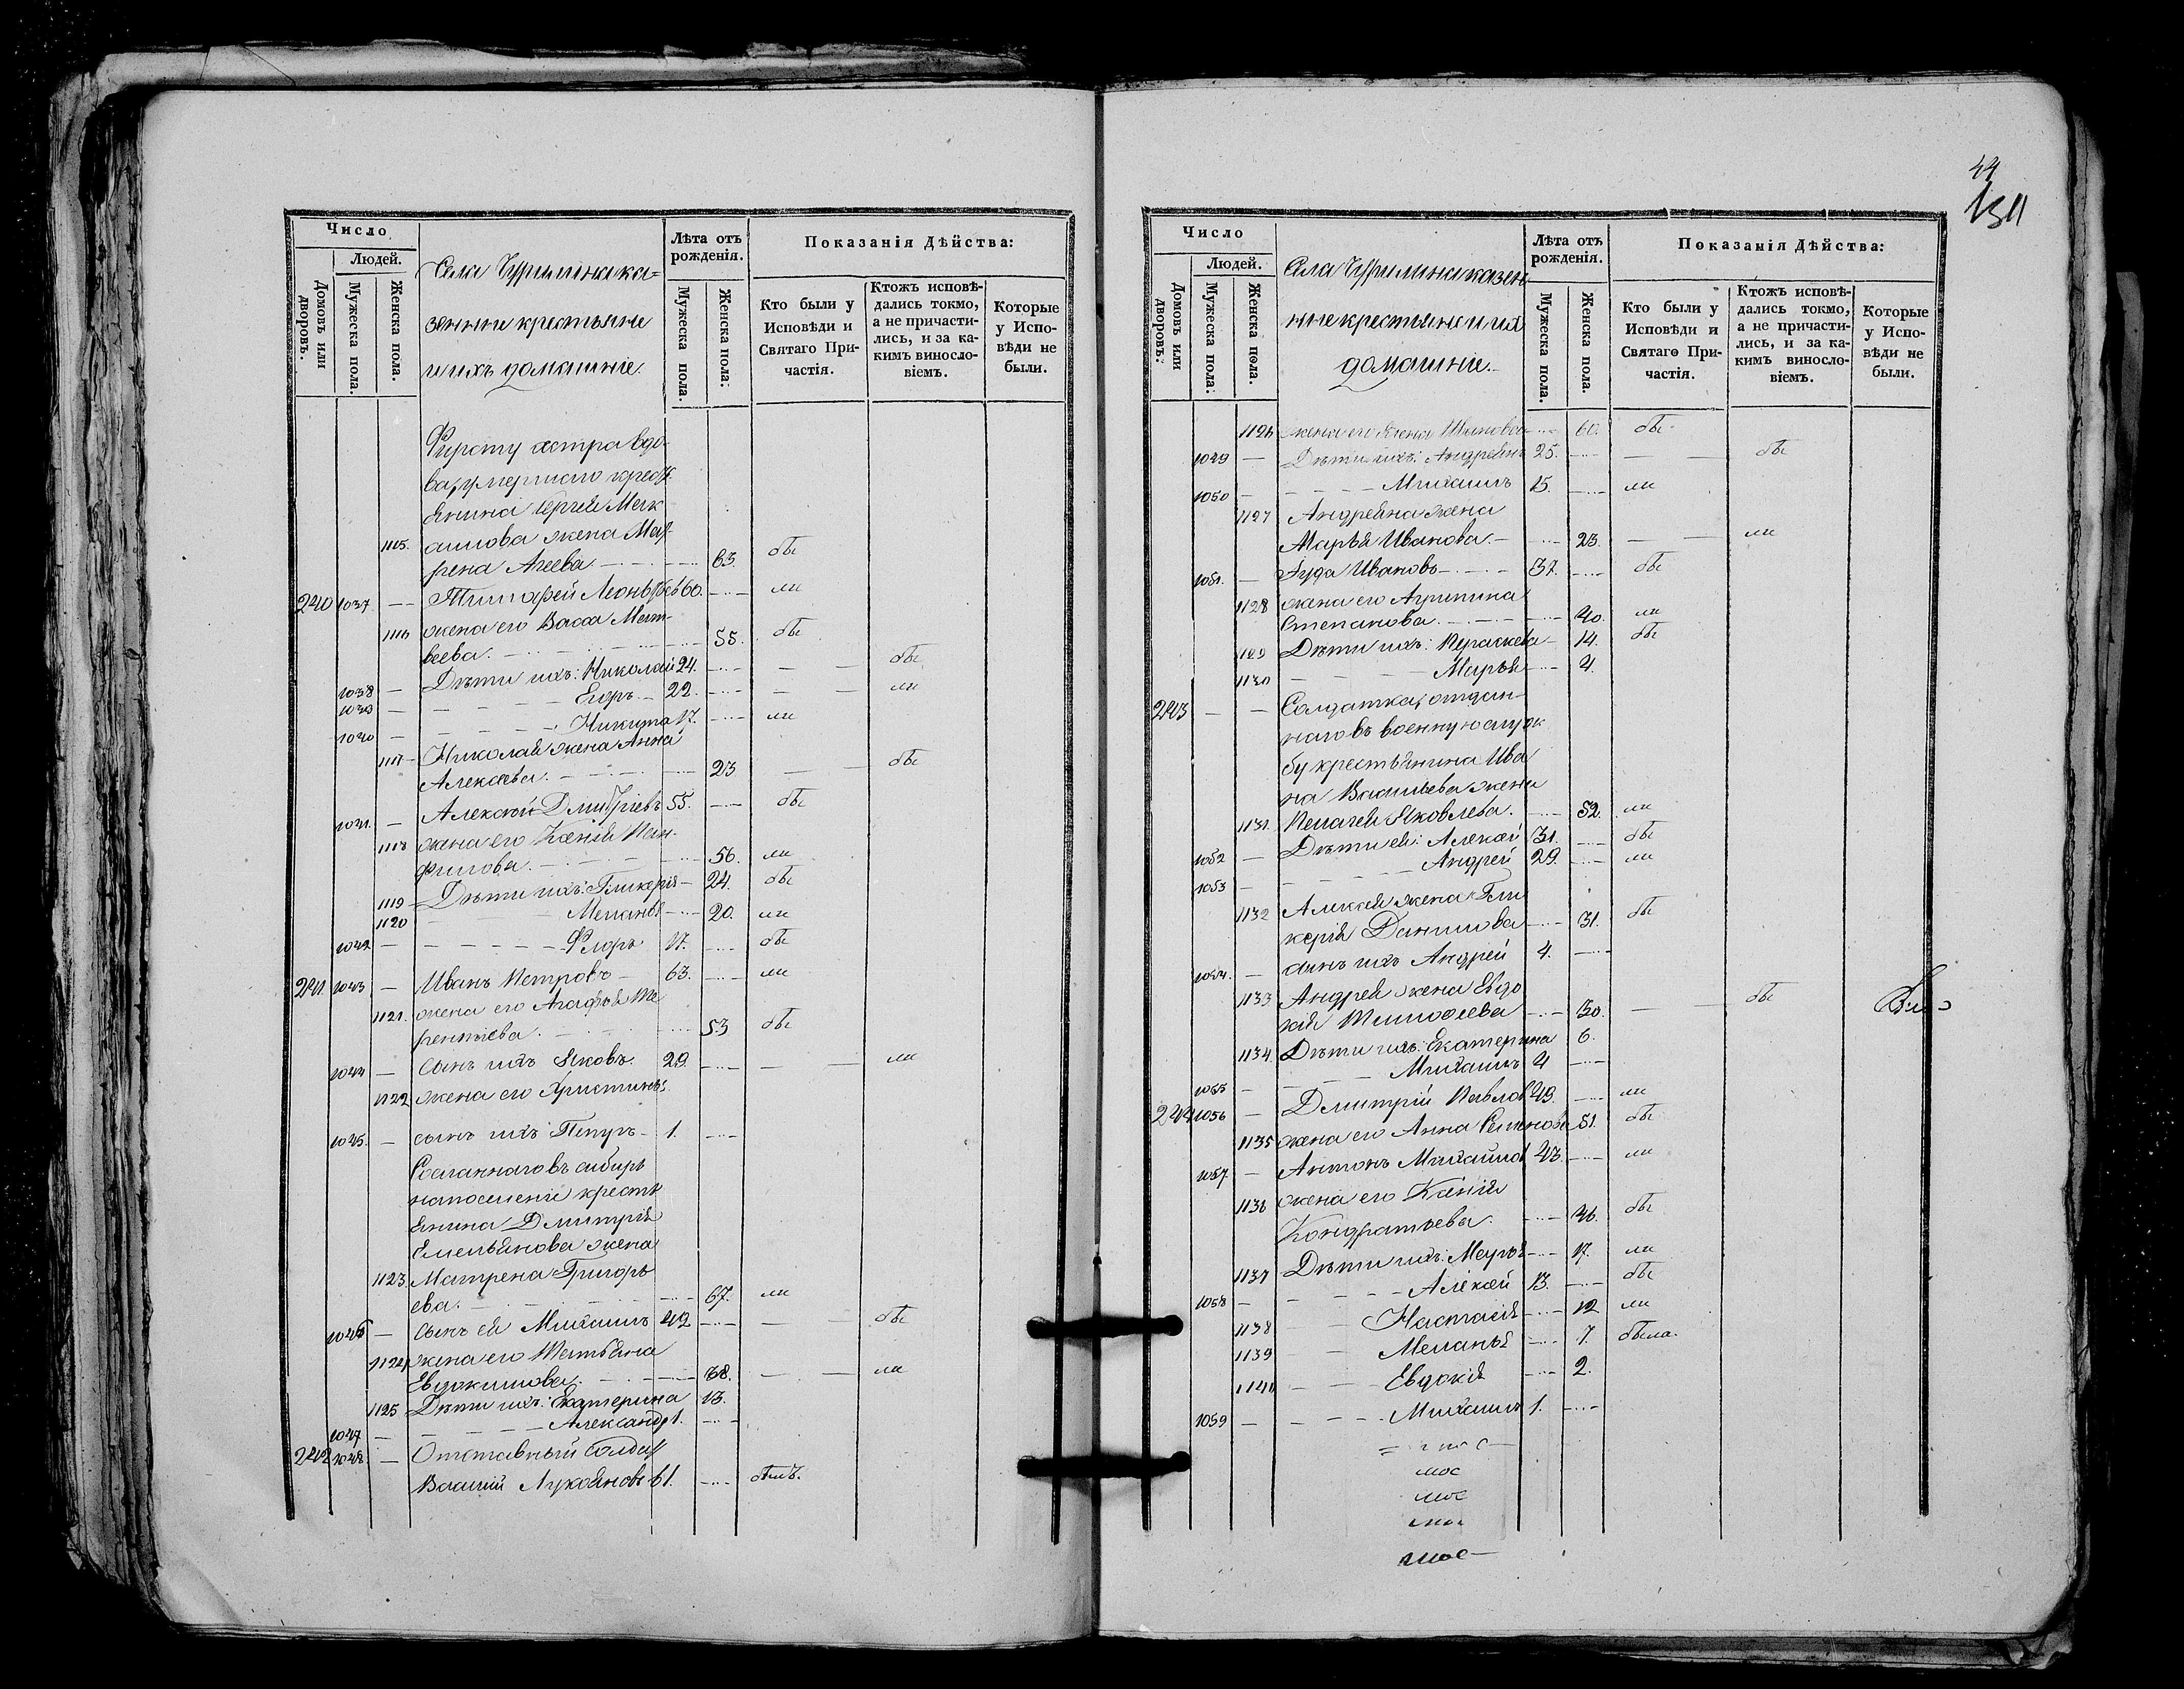 Число
Людей.
Домовъ или дворовъ.
Мужеска пола.
Женска пола.
Села Чурилина ка=
зенные крестьяне
и ихъ домашніе.
Лѣта отъ рожденія.
Мужеска пола.
Женска пола:
Показанія Дѣйства:
Кто были у Исповѣди и Святаго Причастія.
Ктожъ исповѣдались токмо, а не причастились, и за какимъ винословіемъ.
Которые у Исповѣди не были.
сестра вдо
ва, умершаго крест
янина Сергѣя Мак
1115. симова жена Мат
рена Агеева 63. бы
240 1037 Тимофей Леонтьевъ 60. ли
1116 жена его Васса Мат
веева. 55. бы
1038 Дѣти ихъ: Николай 24. бы
1039 Егоръ 22. ли
1040 Никита 17. ли
1117 Николая жена Анна
Алексеева. 23 бы
1041. Алексѣй Дмитріевъ 55. бы
1118 жена его Ксенія Пан
филова. 56. ли
1119 Дѣти ихъ: Гликерія 24. бы
1120 Меланья 20. ли
1042 Флоръ 17. бы
241 1043 Иванъ Петровъ 63. ли
1121. жена его Агафья Те
рентьева. 53 бы
1044 Сынъ ихъ Яковъ. 29. ли
1122 жена его Христинья
1045. сынъ ихъ Петръ 1.
Сосланнаго въ сибирь
на поселеніе кресть
янина Дмитрія
Емельянова жена
1123. Матрена Григорь
ева. 67. ли
1046 сынъ ея Михаилъ 42 бы
1124 жена его Татьяна
Евдокимова. 38. ли
1125 Дѣти ихъ: Екатерина 13.
1047 Александръ 1.
242 1048. Отставный Солдатъ
Василій Лукояновъ 61. былъ.
44
Число
Людей.
Домовъ или дворовъ.
Мужеска пола:
Женска пола.
Села Чурилина казен
ные крестьяне и ихъ
домашніе.
Лѣта отъ рожденія.
Мужеска пола.
Женска пола.
Показанія Дѣйства:
Кто были у Исповѣди и Святаго Причастія.
Ктожъ исповѣдались токмо, а не причастились, и за какимъ винословіемъ.
Которые у Исповѣди не были.
1126 жена его Иванова 60. бы
1049 Дѣти ихъ: Андреянъ 25. бы
1050 Михаилъ 15. ли
1127 Андреяна жена
Марья Иванова. 23. ли
1051. Іуда Ивановъ 37. бы
1128 жена его Агрипина
Степанова. 40. ли
1129 Дѣти ихъ: Параскева 14. бы
1130 Марья 4.
243 Солдатка, отдан
наго въ военную служ
бу крестьянина Ива
на Васильева жена
1131. Пелагея Яковлева. 52. ли
1052 Дѣти ея: Алексей 31. бы
1053 Андрей 29. ли
1132 Алексея жена Гли
керія Данилова 31. бы
1054. сынъ ихъ Андрей 4.
1133 Андрея жена Евдо
кія Тимофеева 30. бы
1134. Дѣти ихъ: Екатерина 6.
1055 Михаилъ 4
244 1056 Дмитрій Павловъ 49. ли
1135 жена его Анна Семенова 51. бы
1057. Антонъ Михайловъ 43. ли
1136 жена его Ксенія
Кондратьева. 46. бы
1137 Дѣти ихъ: Марья 17. ли
1058 Алексѣй 13. бы
1138 Настасія 12 ли
1139 Меланья 7. была.
1140 Евдокія 2.
1059 Михаилъ 1.